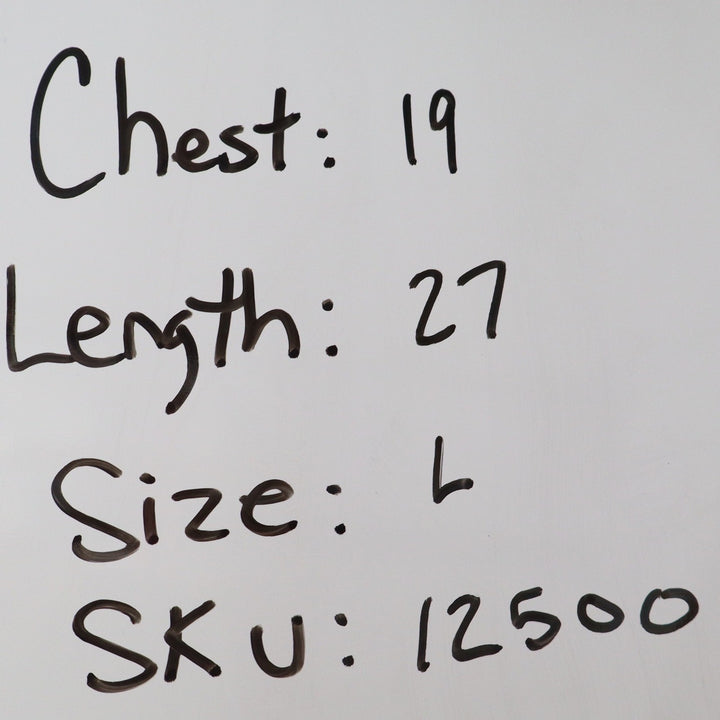 Chest: 19
Length: 27
Size: L
SKU: 12500